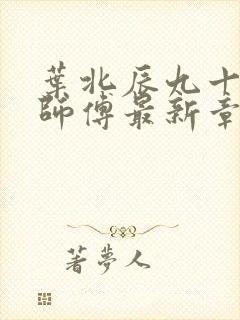 葉北辰九十
師傅最新章
著夢人